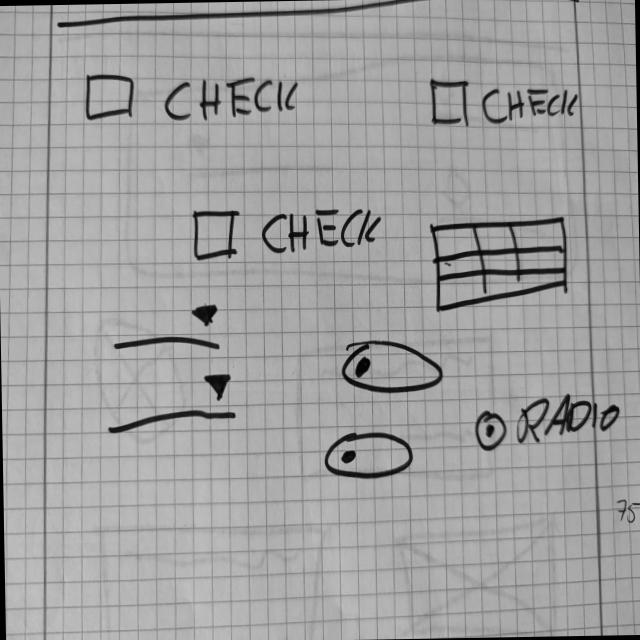 CHECK CHECK
CHECK
RADIO
75